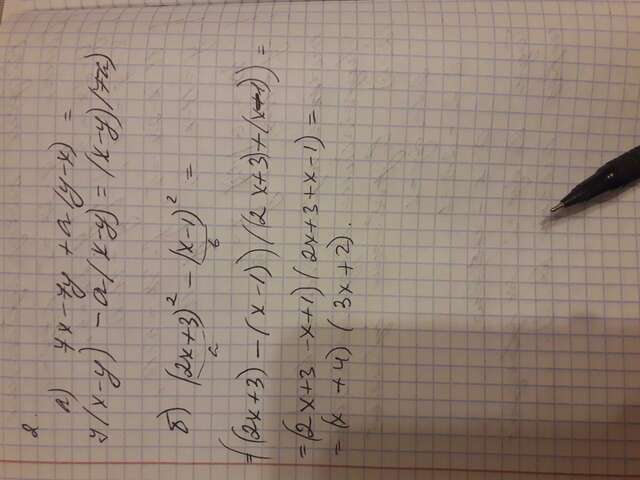 2.
а) 7x-7y+a(y-x)=
7(x-y)-a(x-y)=(x-y)(7-a)
б) (2x+3)²-(x-1)²=
a в
=((2x+3)-(x-1))((2x+3)+(x-1))=
=(2x+3-x+1)(2x+3+x-1)=
=(x+4)(3x+2).